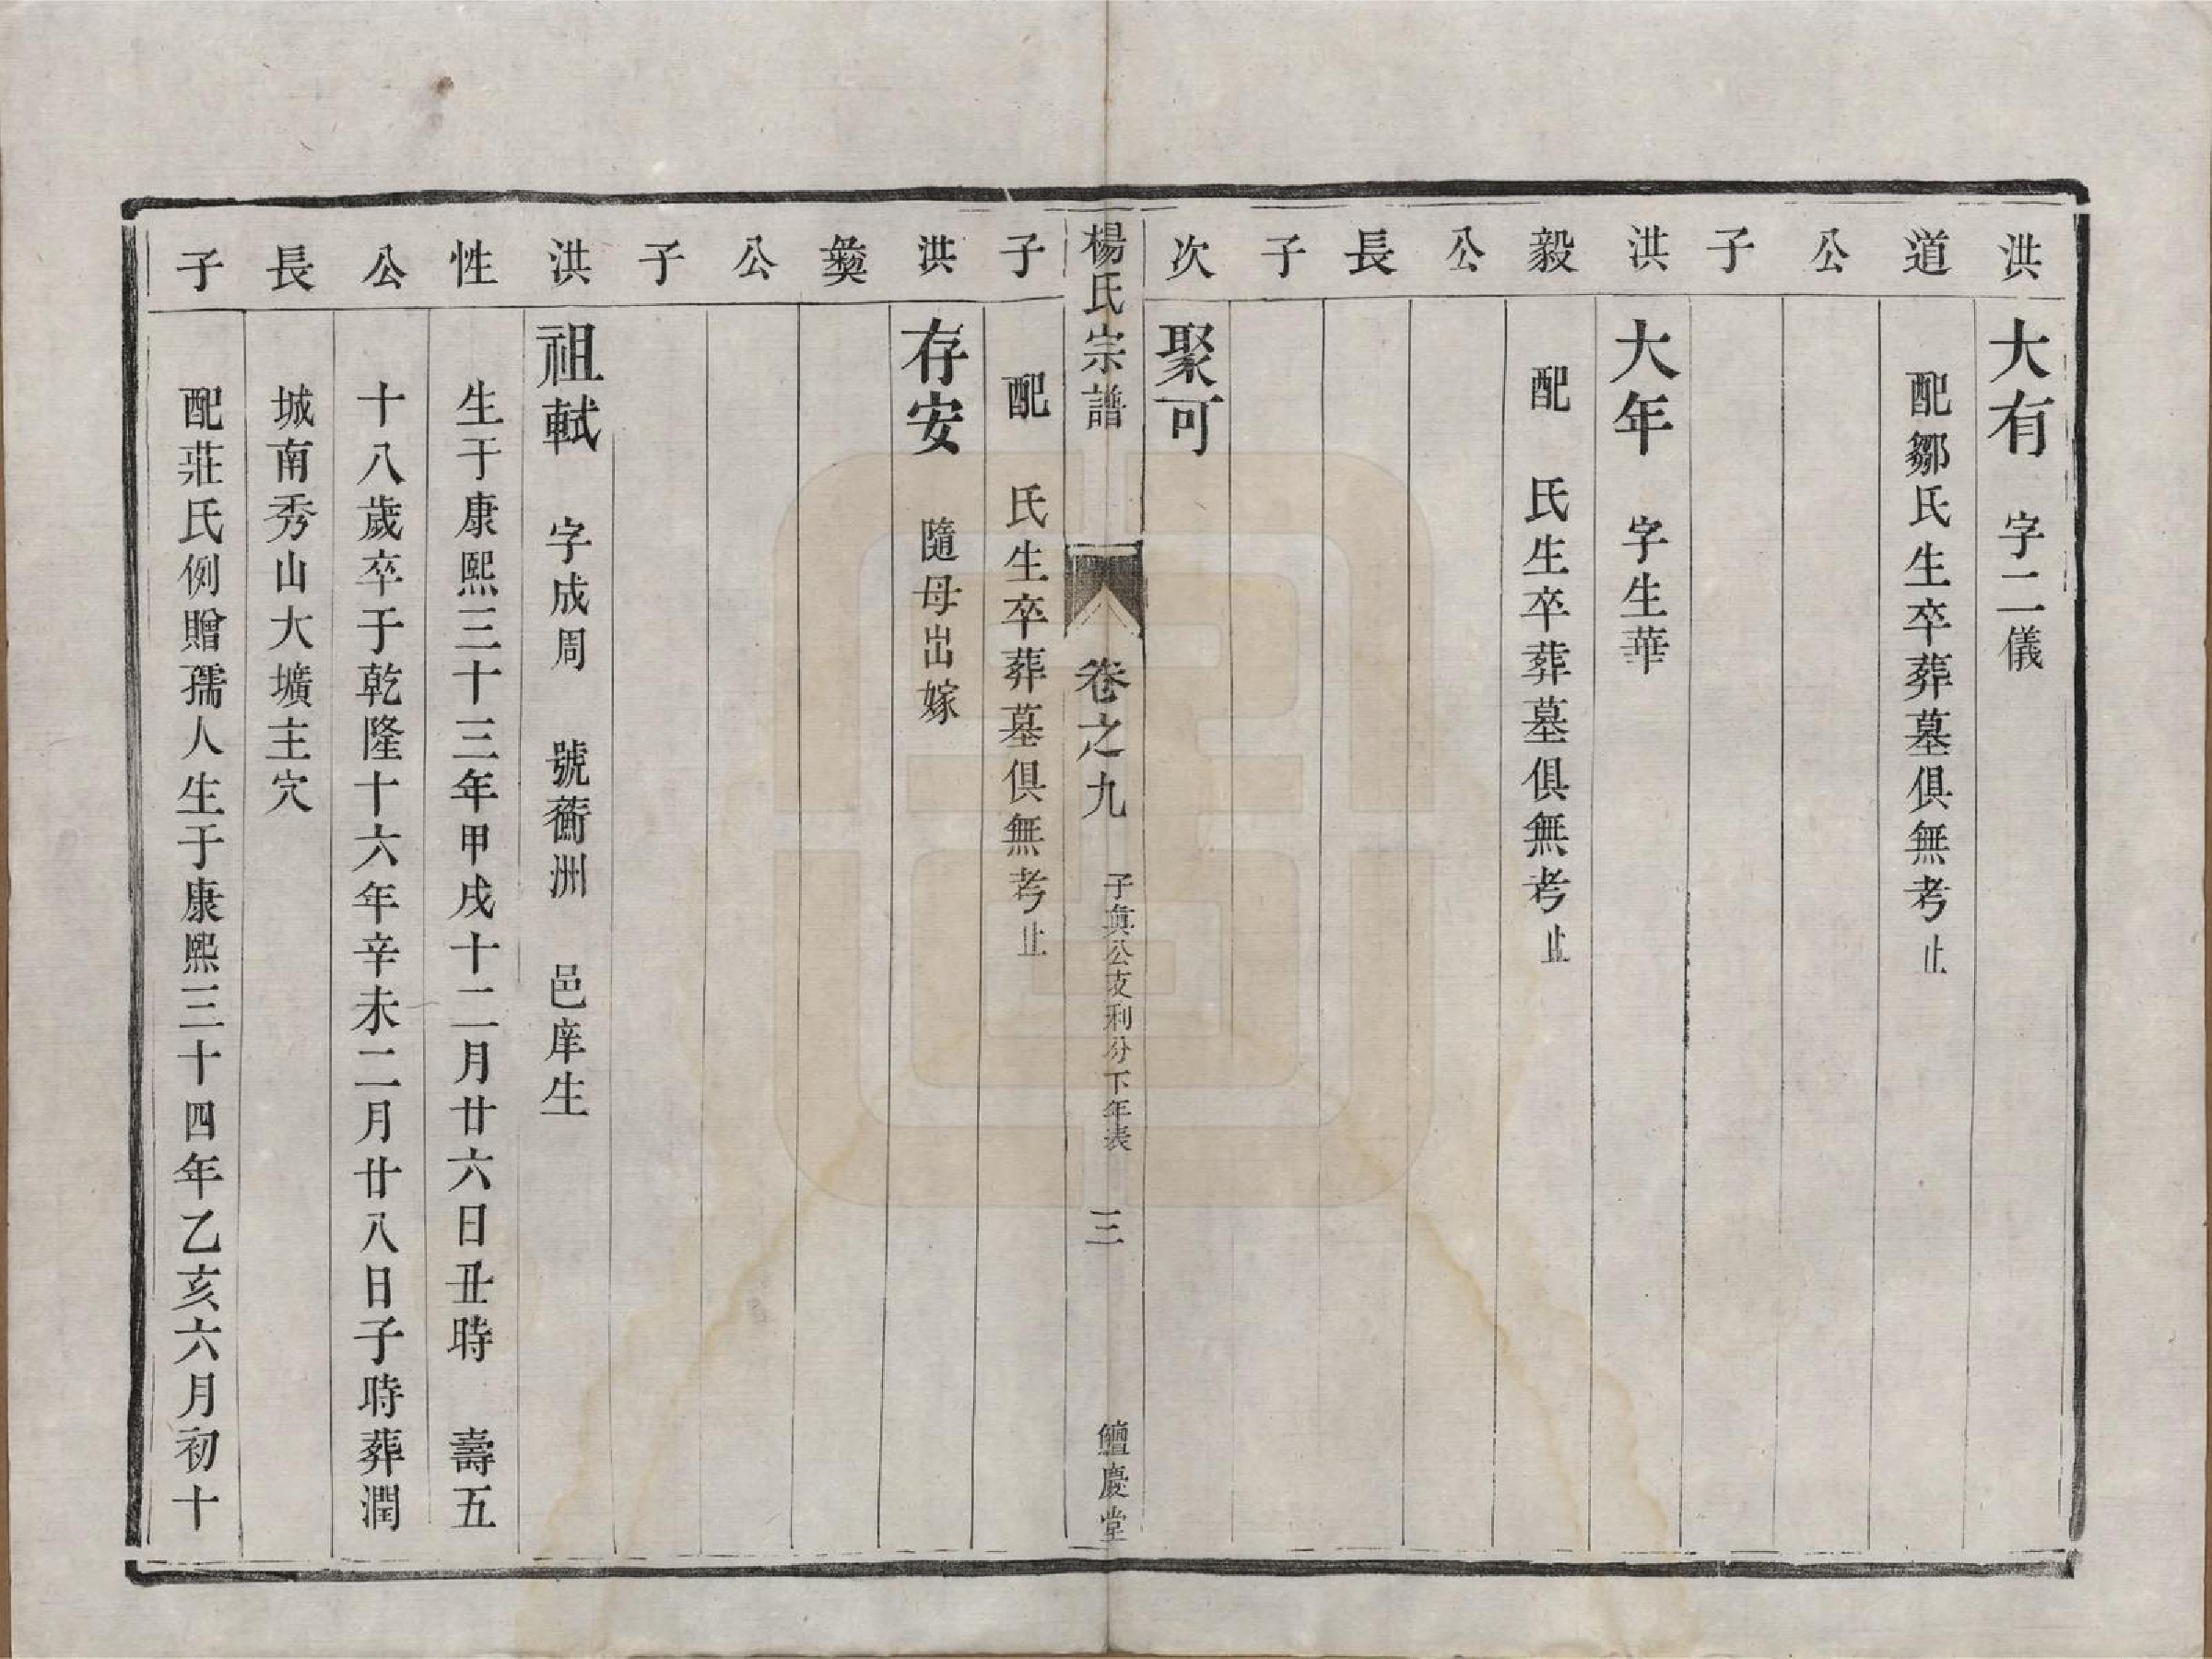 洪　大有　字二儀
道　配鄒氏生卒葬墓俱無考止
公
子
洪　大年　字生華
毅　配　氏生卒葬墓俱無考止
公
長
子
次　聚可
楊氏宗譜　卷之九　子真公支利分下年表　三　鱣慶堂
子　配　氏生卒葬墓俱無考止
洪　存安　隨母出嫁
彝
公
子
洪　祖軾　字成周　號蘅洲　邑庠生
性　生于康熙三十三年甲戌十二月廿六日丑時　壽五
公　十八歲卒于乾隆十六年辛未二月廿八日子時葬潤
長　城南秀山大壙主穴
子　配莊氏例贈孺人生于康熙三十四年乙亥六月初十